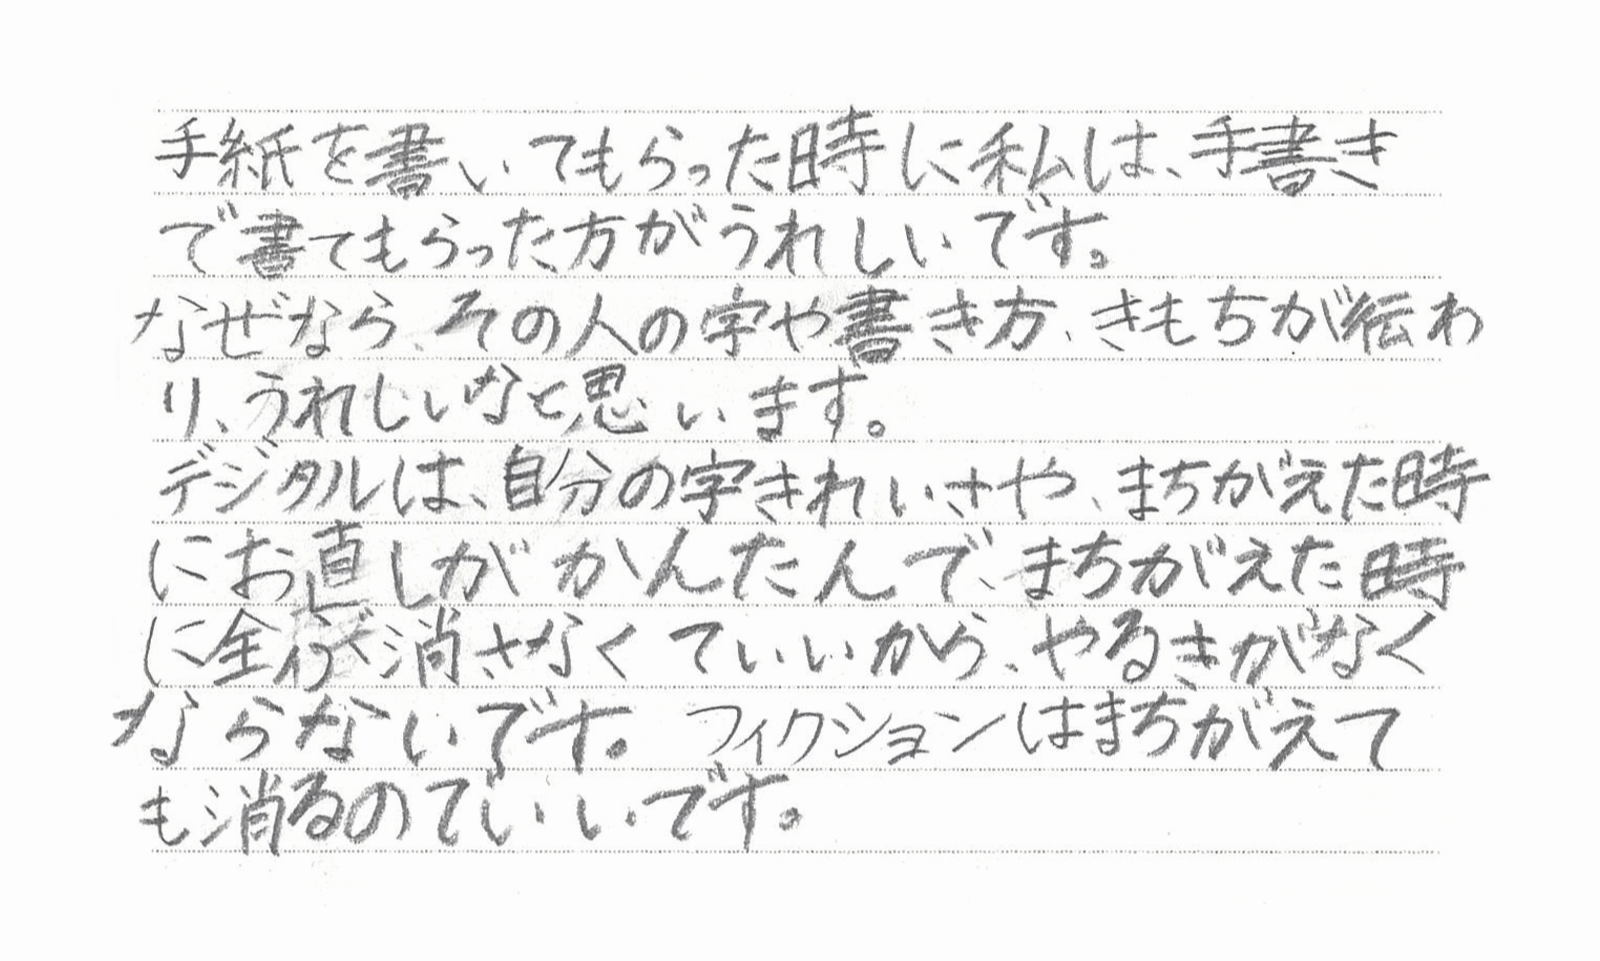 手紙を書いてもらった時に私は、手書き
で書てもらった方がうれしいです。
なぜなら、その人の字や書き方、きもちが伝わ
り、うれしいなと思います。
デジタルは、自分の字きれいさや、まちがえた時
にお直しがかんたんで、まちがえた時
に全部消さなくていいから、やるきがなく
ならないです。フィクションはまちがえて
も消るのでいいです。